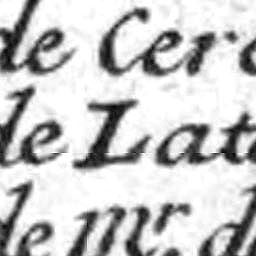 de Cer
de Lat
de mr. d